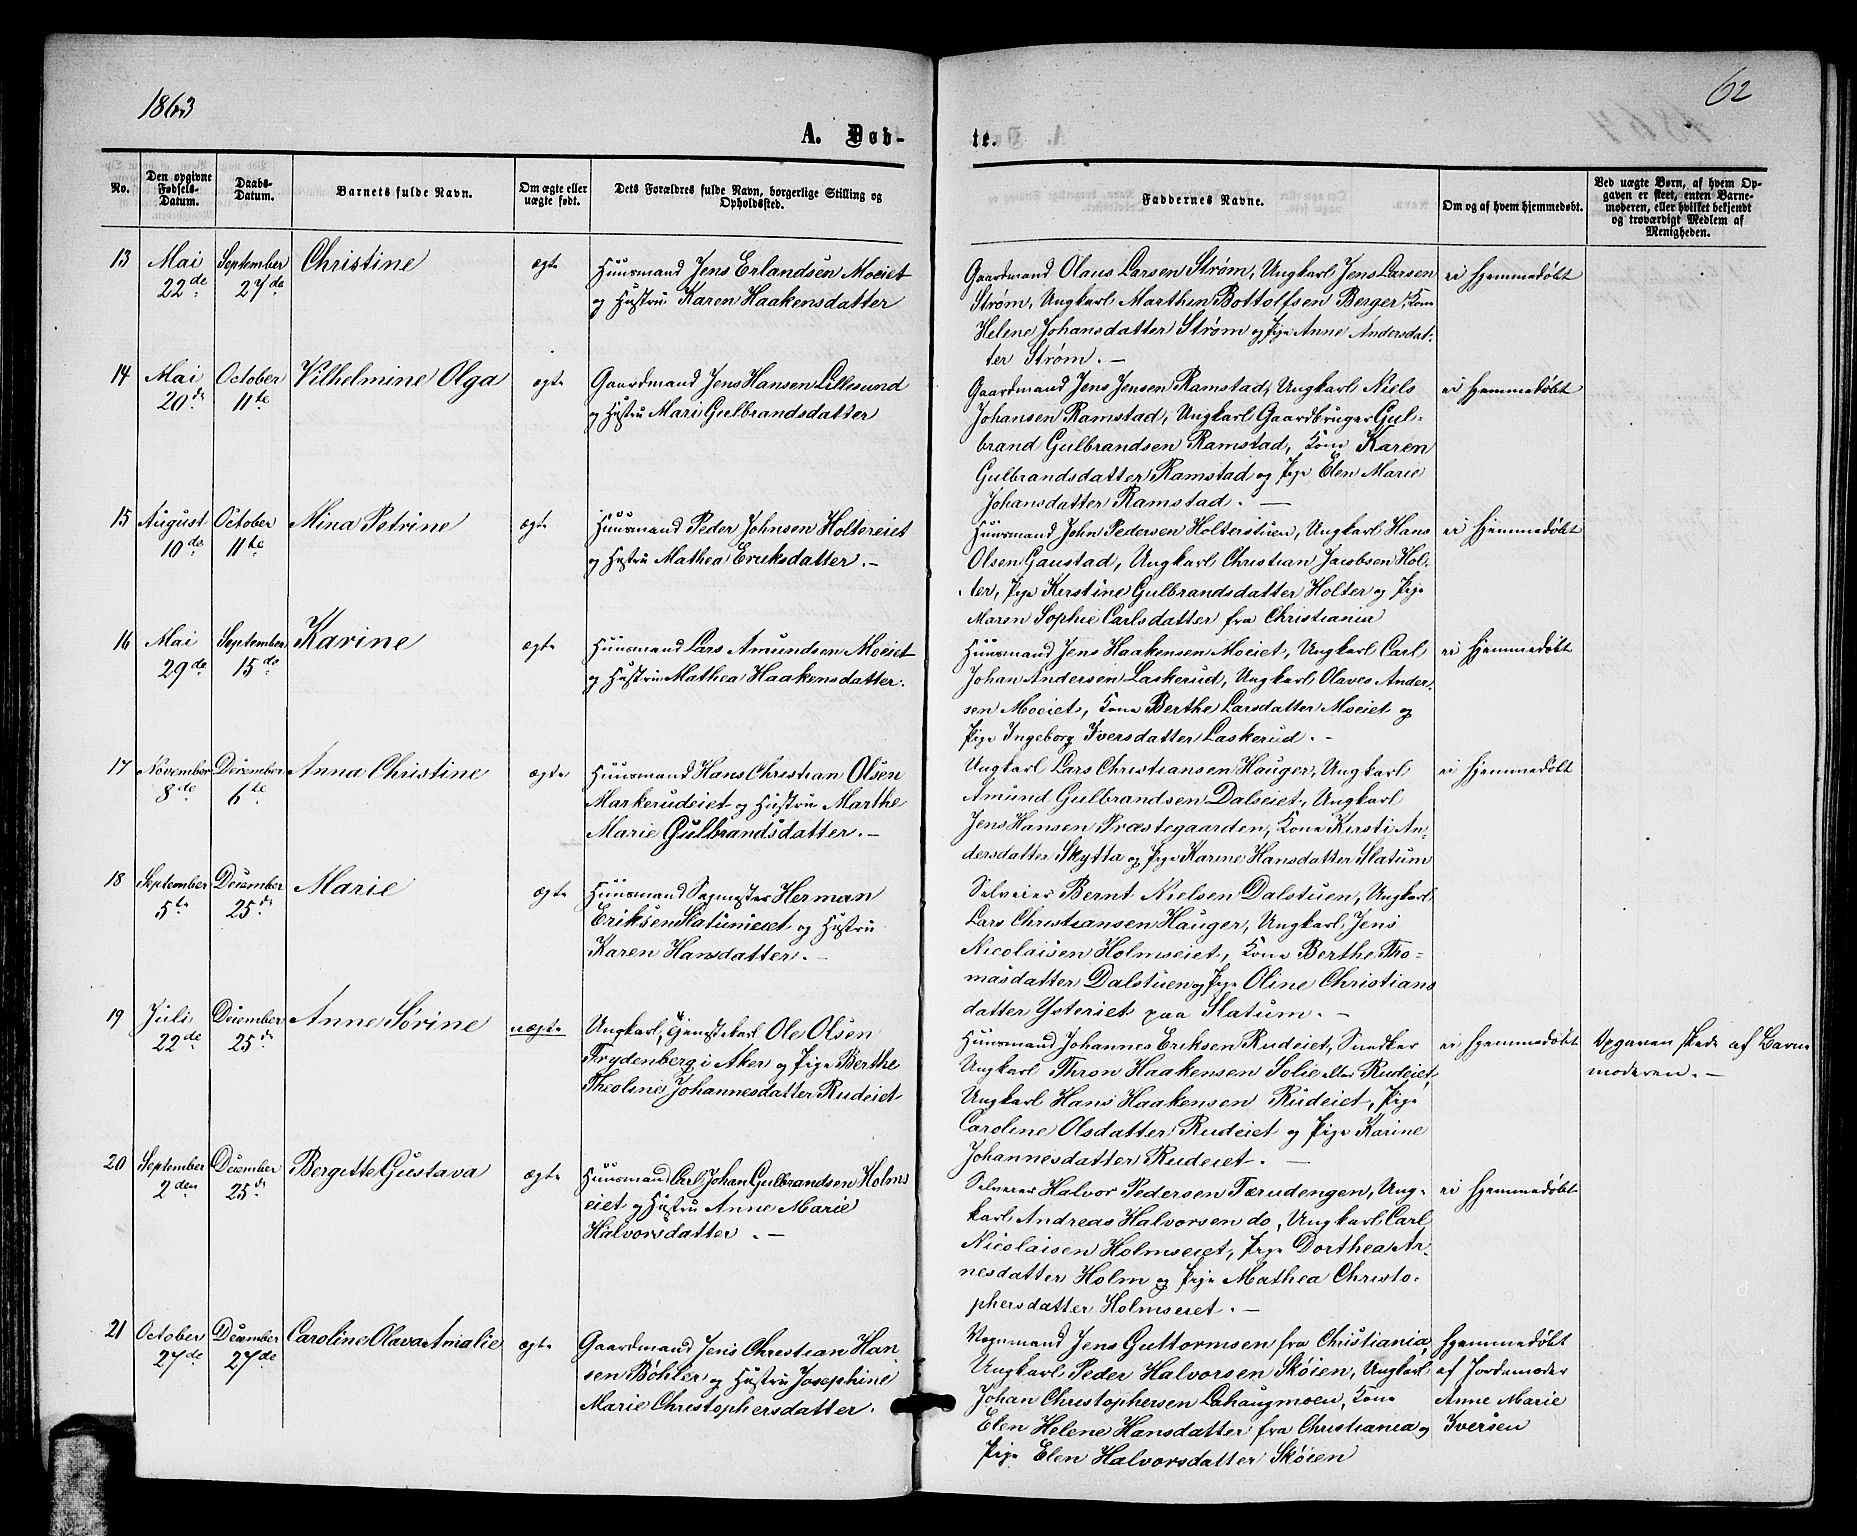 1863
62
A. Døb-
te.
No.
Den opgivne Fødsels-Datum.
Daabs-Datum.
Barnets fulde Navn.
Om ægte eller uægte født.
Dets Forældres fulde Navn, borgerlige Stilling og Opholdssted.
Faddernes Navne.
Om og af hvem hjemmedøbt.
Ved uægte Børn, af hvem Op-
gaven er skeet, enten Barne-
moderen, eller hvilket bekjendt
og troværdigt Medlem af
Menigheden.
13
Mai
22de
September
27de
Christine
ægte
Huusmand Jens Erlandsen Moeiet
og Hustru Karen Haakensdatter
Gaardmand Olaus Larsen Strøm, Ungkarl Jens Larsen
Strøm, Ungkarl Marthin Bottolfsen Berger, Kone
Helene Johansdatter Strøm og Pige Anne Andersdat-
ter Strøm. -
ei Hjemmedøbt
14
Mai
20de
October
11te
Vilhelmine Olga
ægte
Gaardmand Jens Hansen Lillesund
og Hustru Mari Gulbrandsdatter
Gaardmand Jens Jensen Ramstad, Ungkarl Niels
Johansen Ramstad, Ungkarl Gaardbruger Gul-
brand Gulbrandsen Ramstad, Kone Karen
Gulbrandsdatter Ramstad og Pige Elen Marie
Johansdatter Ramstad. -
ei Hjemmedøbt
15
August
10de
October
11te
Mina Petrine
ægte
Huusmand Peder Johnsen Holtereiet
og Hustru Mathea Eriksdatter. -
Huusmand John Pedersen Holterstuen, Ungkarl Hans
Olsen Gaustad, Ungkarl Christian Jacobsen Hol-
ter, Pige Kerstine Gulbrandsdatter Holter og Pige
Maren Sophie Carlsdatter fra Christiania
ei Hjemmedøbt
16
Mai
29de
September
15de
Karine
ægte
Huusmand Lars Amundsen Moeiet
og Hustru Mathea Haakensdatter.
Huusmand Jens Haakensen Moeiet, Ungkarl Carl
Johan Andersen Laskerud, Ungkarl Olaves Ander-
sen Moeiet, Kone Berthe Larsdatter Moeiet og
Pige Ingeborg Iversdatter Laskerud. -
ei Hjemmedøbt
17
November
8de
December
6te
Anna Christine
ægte
Huusmand Hans Christian Olsen
Markerudeiet og Hustru Marthe
Marie Gulbrandsdatter. -
Ungkarl Lars Christiansen Hauger, Ungkarl
Amund Gulbrandsen Dalseiet, Ungkarl
Jens Hansen Præstegaarden, Kone Kersti An-
dersdatter Skytta og Pige Karine Hansdatter Slatum
ei Hjemmedøbt
18
September
5te
December
25de
Marie
ægte
Huusmand Sagmester Herman
Eriksen Slatumeiet og Hustru
Karen Hansdatter. -
Selveier Bernt Nielsen Dalstuen, Ungkarl
Lars Christiansen Hauger, Ungkarl Jens
Nicolaisen Holmseiet, Kone Berthe Tho-
masdatter Dalstuen og Pige Oline Christians
datter Ysteriet paa Slatum. -
19
Juli
22de
December
25de
Anne Sørine
uægte
Ungkarl, Tjenestekarl Ole Olsen
Frydenberg i Aker og Pige Berthe
Theoline Johannesdatter Rudeiet
Huusmand Johannes Eriksen Rudeiet, Snedker
Ungkarl Thron Haakensen Solie eller Rudeiet,
Ungkarl Hans Haakensen Rudeiet, Pige
Caroline Olsdatter Rudeiet og Pige Karine
Johannesdatter Rudeiet. -
ei Hjemmedøbt
Opgaven skede af Barne
moderen. -
20
September
2den
December
25de
Bergitte Gustava
ægte
Huusmand Carl Johan Gulbrandsen Holms
eiet og Hustru Anne Marie
Halvorsdatter. -
Selveier Halvor Pedersen Tærudengen, Ung-
karl Andreas Halvorsen do, Ungkarl Carl
Nicolaisen Holmseiet, Pige Dorthea Ar-
nesdatter Holm og Pige Mathea Christo-
phersdatter Holmseiet. -
ei Hjemmedøbt
21
October
27de
December
27de
Caroline Olava Amalie
ægte
Gaardmand Jens Christian Han-
sen Bøhler og Hustru Josephine
Marie Christophersdatter.
Vognmand Jens Guttormsen fra Christiania,
Ungkarl Peder Halvorsen Skøien, Ungkarl
Johan Christophersen Lahaugmoen, Kone
Elen Helene Hansdatter fra Christiania og
Pige Elen Halvorsdatter Skøien
Hjemmedøbt
af Jordemoder
Anne Marie
Iversen